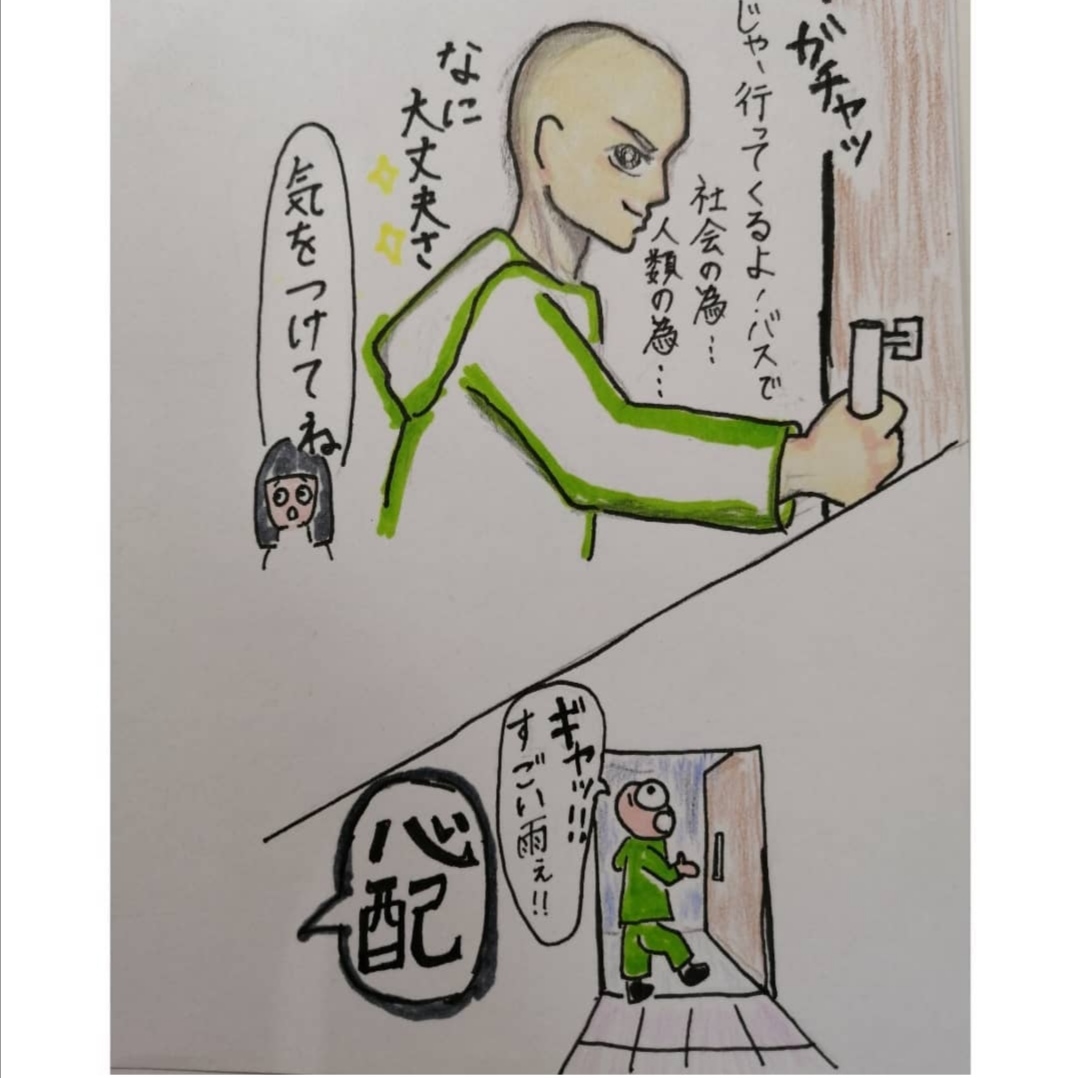 ガチャッ
じゃー行ってくるよ!バスで
社会の為…
人類の為…
なに
大丈夫さ
気をつけてね
ギャッ!!
すごい雨ぇ!!
心配